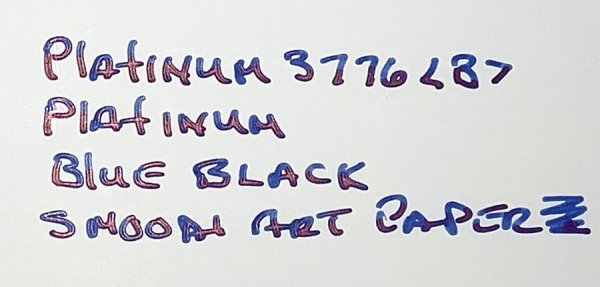 Platinum 3776 <B>
Platinum
Blue Black
Smooth Art Paper